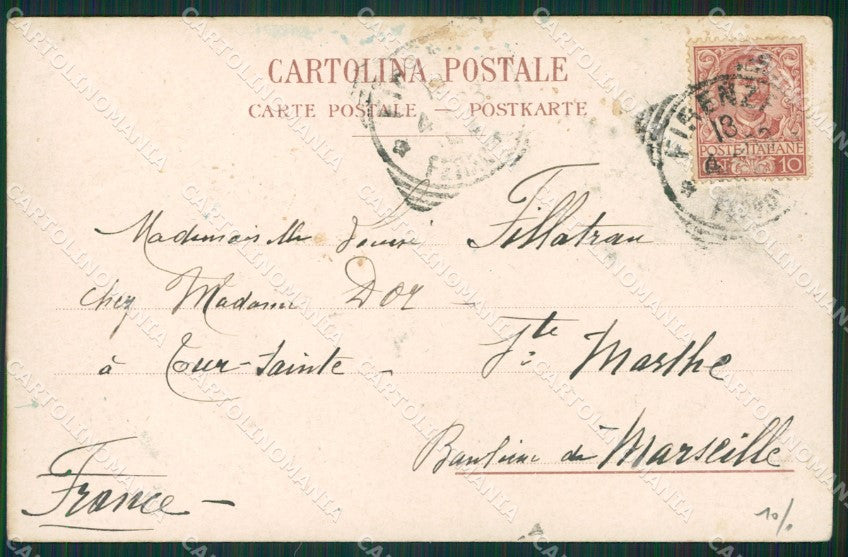 CARTOLINA POSTALE
CARTE POSTALE — POSTKARTE
FIRENZE
FIRENZE
18
POSTE ITALIANE
10
Mademoiselle Louise Fillatrau
chez Madame Dor —
à Tour-Sainte — Ste Marthe
Banlieue de Marseille
France —
10/
CARTOLINOMANIA